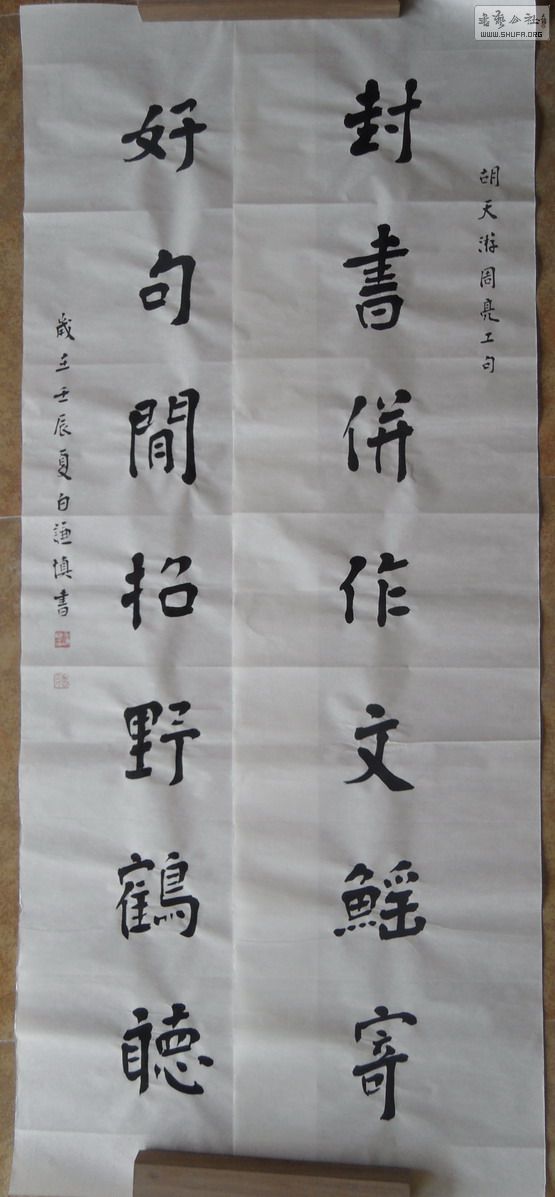 胡天游周亮工句
封書併作文鰩寄
好句閒招野鶴聽
歲在壬辰夏白謙慎書
書藝公社
WWW.SHUFA.ORG